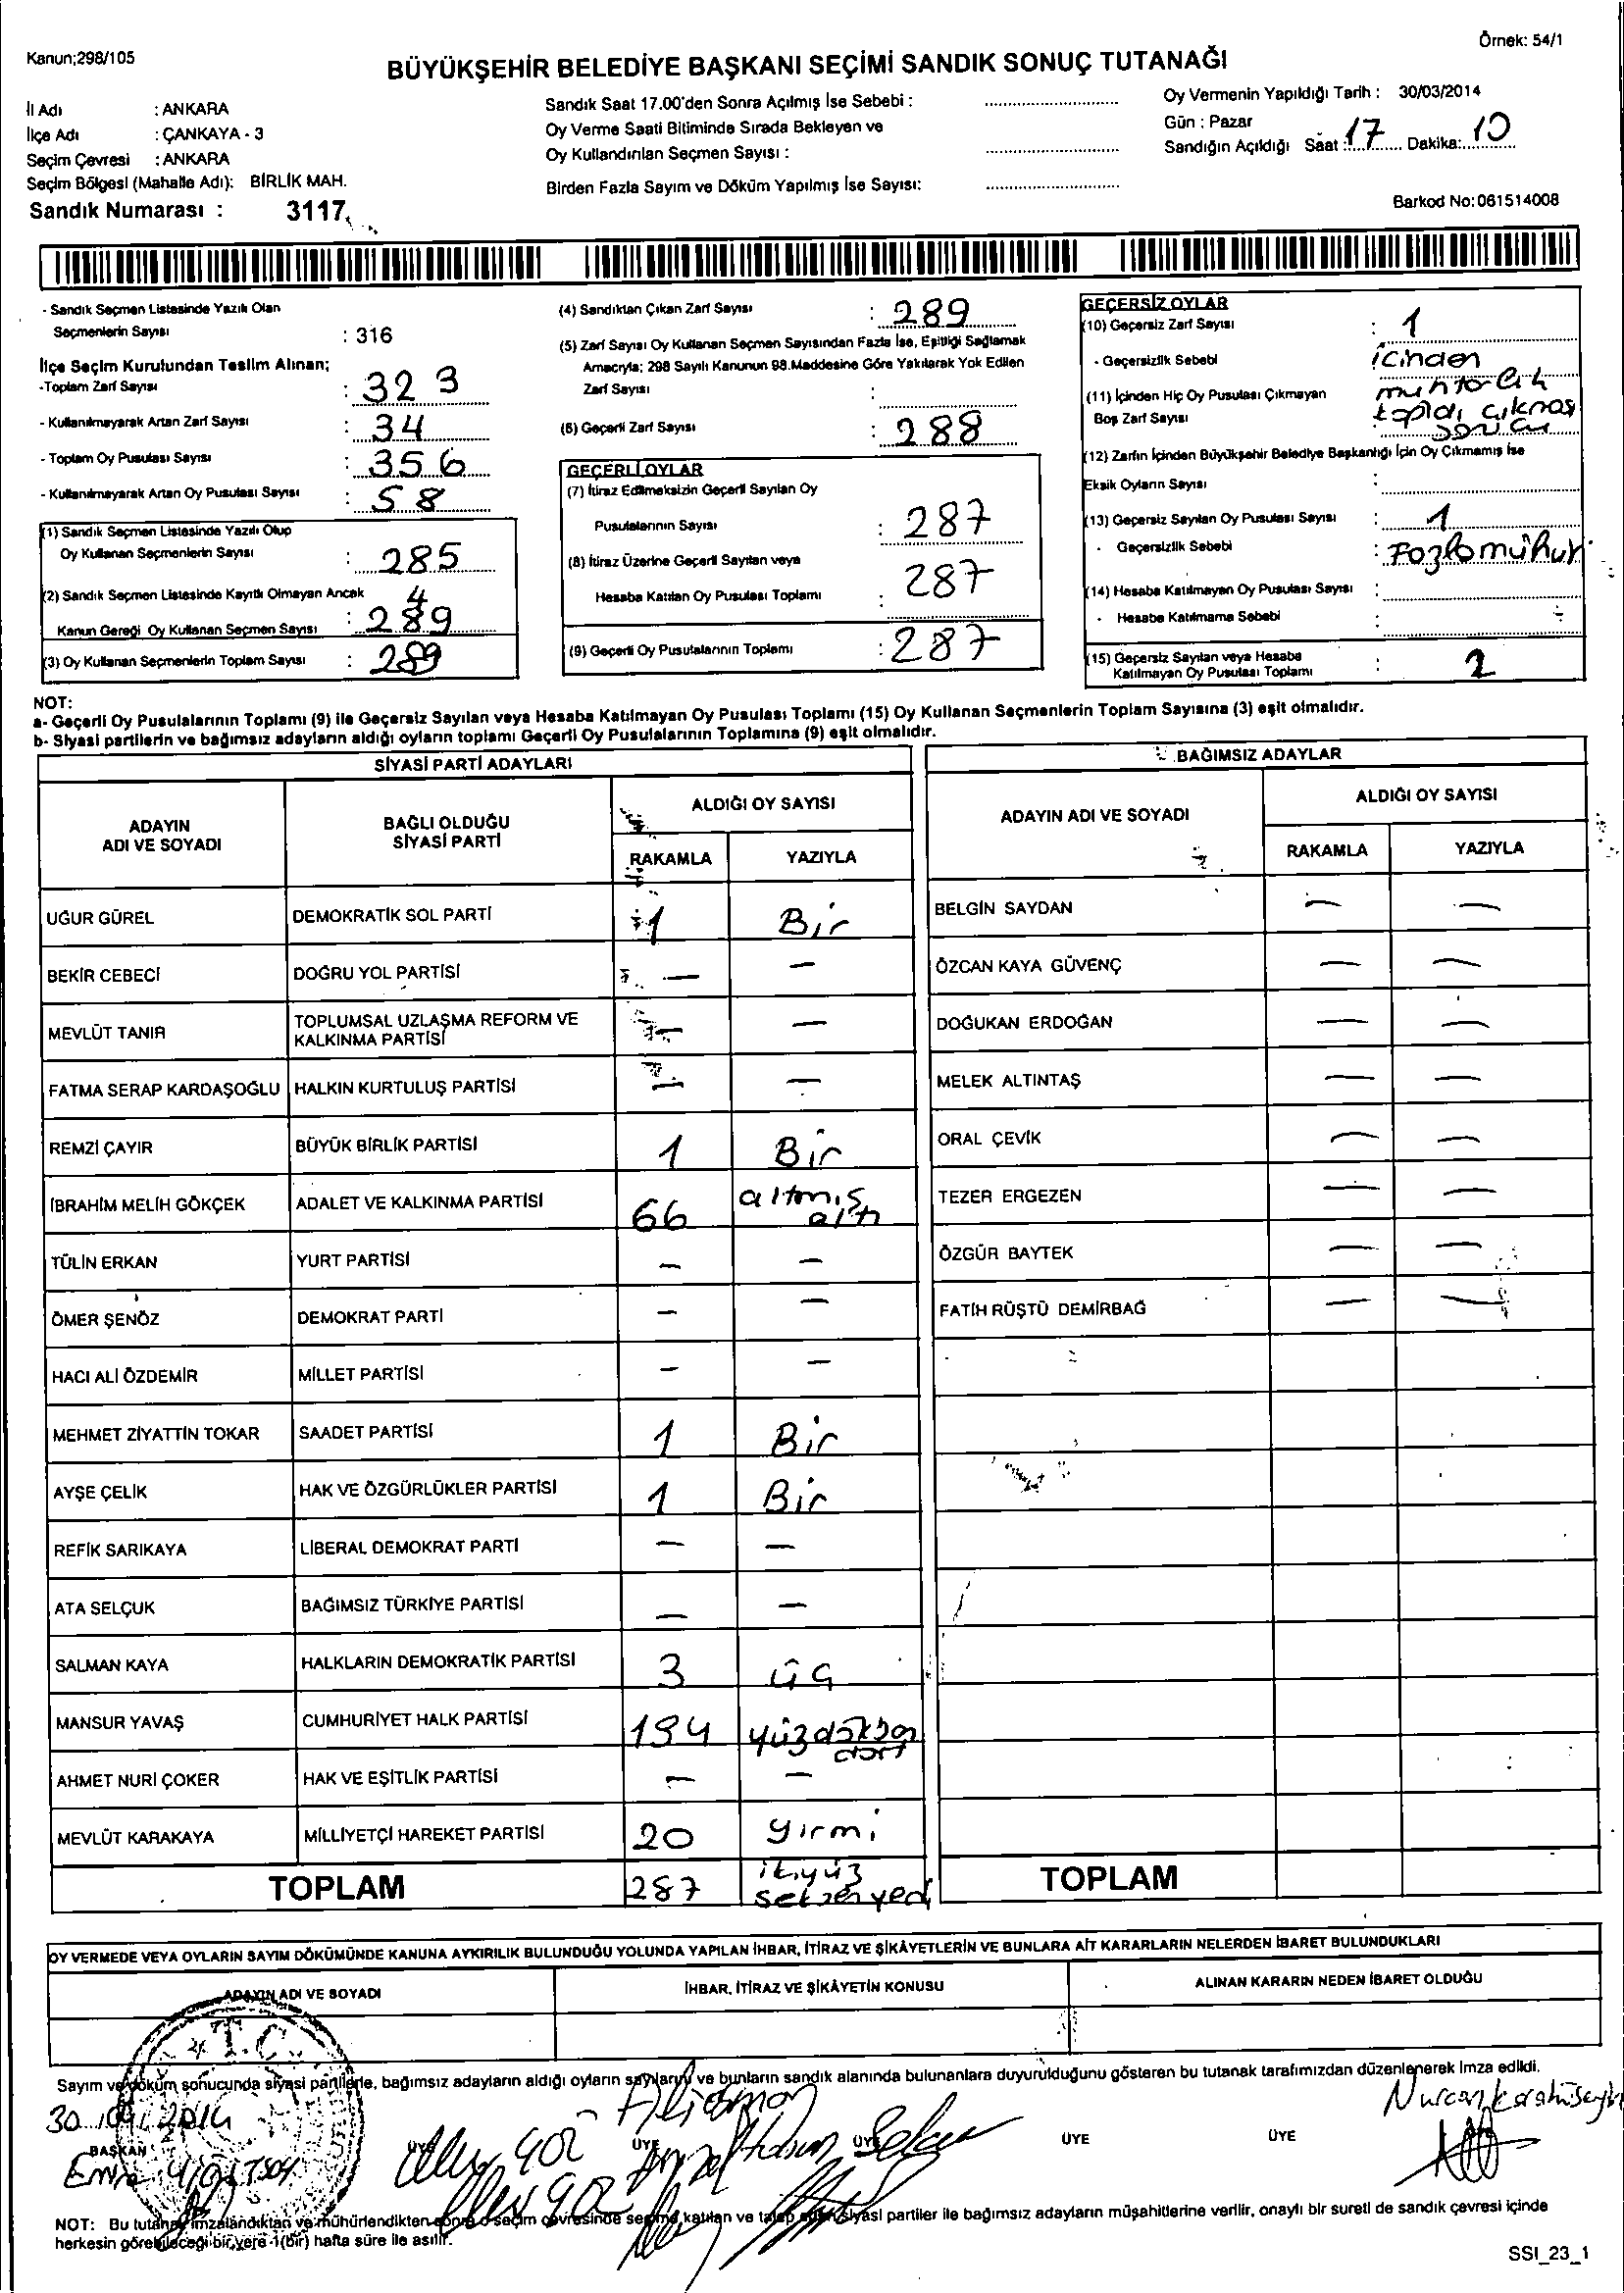 Kanun;298/105
Örnek: 54/1
BÜYÜKŞEHİR BELEDİYE BAŞKANI SEÇİMİ SANDIK SONUÇ TUTANAĞI
İl Adı : ANKARA
İlçe Adı : ÇANKAYA - 3
Seçim Çevresi : ANKARA
Seçim Bölgesi (Mahalle Adı): BİRLİK MAH.
Sandık Numarası : 3117
Sandık Saat 17.00'den Sonra Açılmış İse Sebebi :
Oy Verme Saati Bitiminde Sırada Bekleyen ve
Oy Kullandırılan Seçmen Sayısı :
Birden Fazla Sayım ve Döküm Yapılmış İse Sayısı:
Oy Vermenin Yapıldığı Tarih : 30/03/2014
Gün : Pazar
Sandığın Açıldığı Saat : 17 Dakika: 10
Barkod No:061514008
- Sandık Seçmen Listesinde Yazılı Olan
Seçmenlerin Sayısı : 316
İlçe Seçim Kurulundan Teslim Alınan;
-Toplam Zarf Sayısı : 323
- Kullanılmayarak Artan Zarf Sayısı : 34
- Toplam Oy Pusulası Sayısı : 356
- Kullanılmayarak Artan Oy Pusulası Sayısı : 58
(1) Sandık Seçmen Listesinde Yazılı Olup
Oy Kullanan Seçmenlerin Sayısı : 285
(2) Sandık Seçmen Listesinde Kayıtlı Olmayan Ancak 4
Kanun Gereği Oy Kullanan Seçmen Sayısı : 289
(3) Oy Kullanan Seçmenlerin Toplam Sayısı : 289
(4) Sandıktan Çıkan Zarf Sayısı : 289
(5) Zarf Sayısı Oy Kullanan Seçmen Sayısından Fazla İse, Eşitliği Sağlamak
Amacıyla; 298 Sayılı Kanunun 98.Maddesine Göre Yakılarak Yok Edilen
Zarf Sayısı :
(6) Geçerli Zarf Sayısı : 288
GEÇERLİ OYLAR
(7) İtiraz Edilmeksizin Geçerli Sayılan Oy
Pusulalarının Sayısı : 287
(8) İtiraz Üzerine Geçerli Sayılan veya
Hesaba Katılan Oy Pusulası Toplamı : 287
(9) Geçerli Oy Pusulalarının Toplamı : 287
GEÇERSİZ OYLAR
(10) Geçersiz Zarf Sayısı : 1
- Geçersizlik Sebebi : içinden
muhtarlık
(11) İçinden Hiç Oy Pusulası Çıkmayan
Boş Zarf Sayısı
(12) Zarfın İçinden Büyükşehir Belediye Başkanlığı İçin Oy Çıkmamış İse
Eksik Oyların Sayısı :
(13) Geçersiz Sayılan Oy Pusulası Sayısı : 1
- Geçersizlik Sebebi : Fazla mühür
(14) Hesaba Katılmayan Oy Pusulası Sayısı :
- Hesaba Katılmama Sebebi :
(15) Geçersiz Sayılan veya Hesaba
Katılmayan Oy Pusulası Toplamı : 2
NOT:
a- Geçerli Oy Pusulalarının Toplamı (9) ile Geçersiz Sayılan veya Hesaba Katılmayan Oy Pusulası Toplamı (15) Oy Kullanan Seçmenlerin Toplam Sayısına (3) eşit olmalıdır.
b- Siyasi partilerin ve bağımsız adayların aldığı oyların toplamı Geçerli Oy Pusulalarının Toplamına (9) eşit olmalıdır.
SİYASİ PARTİ ADAYLARI
ADAYIN ADI VE SOYADI BAĞLI OLDUĞU SİYASİ PARTİ ALDIĞI OY SAYISI
RAKAMLA YAZIYLA
UĞUR GÜREL DEMOKRATİK SOL PARTİ 1 Bir
BEKİR CEBECİ DOĞRU YOL PARTİSİ — —
MEVLÜT TANIR TOPLUMSAL UZLAŞMA REFORM VE KALKINMA PARTİSİ — —
FATMA SERAP KARDAŞOĞLU HALKIN KURTULUŞ PARTİSİ — —
REMZİ ÇAYIR BÜYÜK BİRLİK PARTİSİ 1 Bir
İBRAHİM MELİH GÖKÇEK ADALET VE KALKINMA PARTİSİ 66 altmış altı
TÜLİN ERKAN YURT PARTİSİ — —
ÖMER ŞENÖZ DEMOKRAT PARTİ — —
HACI ALİ ÖZDEMİR MİLLET PARTİSİ — —
MEHMET ZİYATTİN TOKAR SAADET PARTİSİ 1 Bir
AYŞE ÇELİK HAK VE ÖZGÜRLÜKLER PARTİSİ 1 Bir
REFİK SARIKAYA LİBERAL DEMOKRAT PARTİ — —
ATA SELÇUK BAĞIMSIZ TÜRKİYE PARTİSİ — —
SALMAN KAYA HALKLARIN DEMOKRATİK PARTİSİ 3 üç
MANSUR YAVAŞ CUMHURİYET HALK PARTİSİ 194 yüzdoksan dört
AHMET NURİ ÇOKER HAK VE EŞİTLİK PARTİSİ — —
MEVLÜT KARAKAYA MİLLİYETÇİ HAREKET PARTİSİ 20 yirmi
TOPLAM 287 ikiyüz seksenyedi
BAĞIMSIZ ADAYLAR
ADAYIN ADI VE SOYADI ALDIĞI OY SAYISI
RAKAMLA YAZIYLA
BELGİN SAYDAN — —
ÖZCAN KAYA GÜVENÇ — —
DOĞUKAN ERDOĞAN — —
MELEK ALTINTAŞ — —
ORAL ÇEVİK — —
TEZER ERGEZEN — —
ÖZGÜR BAYTEK — —
FATİH RÜŞTÜ DEMİRBAĞ — —
TOPLAM
OY VERMEDE VEYA OYLARIN SAYIM DÖKÜMÜNDE KANUNA AYKIRILIK BULUNDUĞU YOLUNDA YAPILAN İHBAR, İTİRAZ VE ŞİKÂYETLERİN VE BUNLARA AİT KARARLARIN NELERDEN İBARET BULUNDUKLARI
ADAYIN ADI VE SOYADI İHBAR, İTİRAZ VE ŞİKÂYETİN KONUSU ALINAN KARARIN NEDEN İBARET OLDUĞU
T.C.
Sayım ve döküm sonucunda siyasi partilerle, bağımsız adayların aldığı oyların sayıları ve bunların sandık alanında bulunanlara duyurulduğunu gösteren bu tutanak tarafımızdan düzenlenerek imza edildi.
BAŞKAN ÜYE ÜYE ÜYE ÜYE ÜYE
NOT: Bu tutanak imzalandıktan ve mühürlendikten sonra o seçim çevresinde seçime katılan ve talep eden siyasi partiler ile bağımsız adayların müşahitlerine verilir, onaylı bir sureti de sandık çevresi içinde
herkesin görebileceği bir yere 1(bir) hafta süre ile asılır.
SSI_23_1